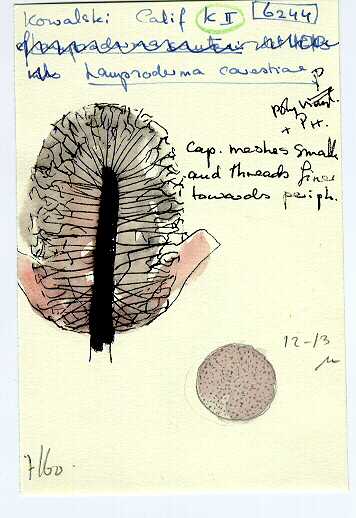 Kowalski Calif KII 6244
Lamproderma carestiae
?
+ PH.
Cap. meshes small
and threads finer
towards periph.
12-13
µ
7/60.